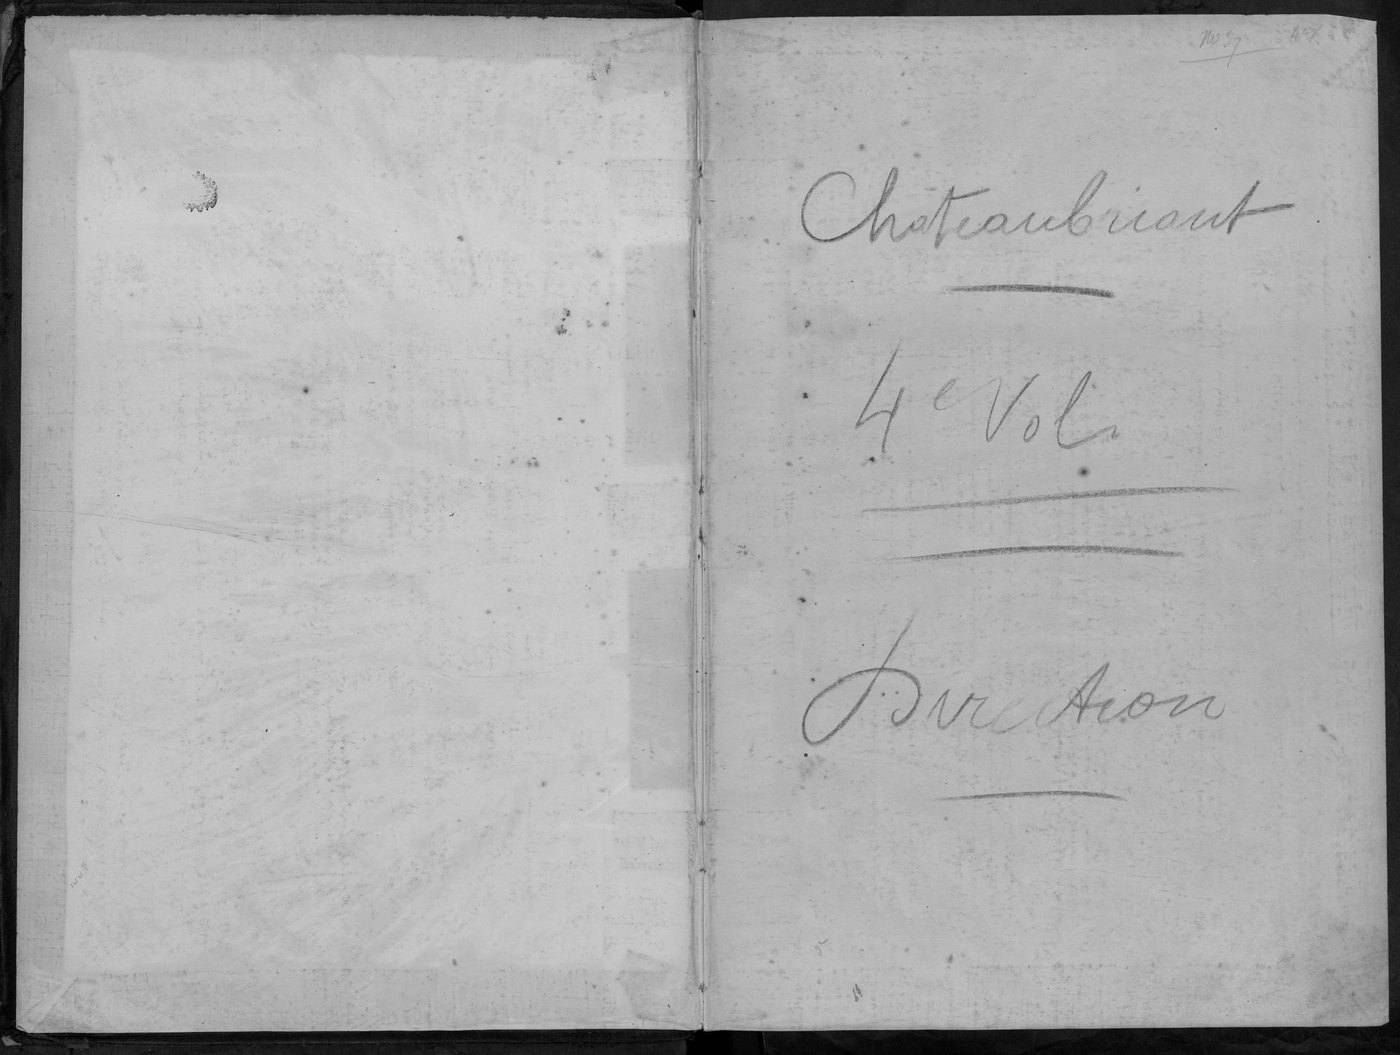 Chateaubriant
4e Vol
Direction